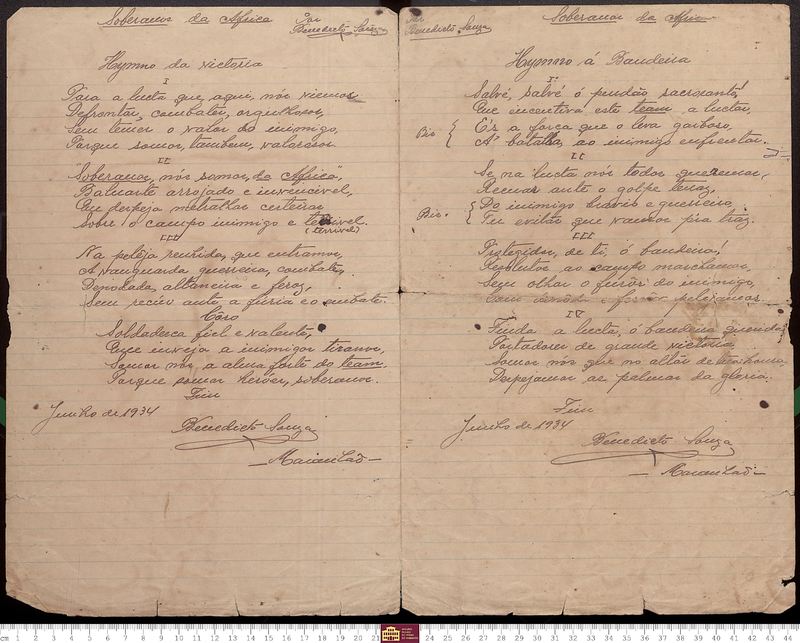 Soberanos da Africa
Por
Benedicto Souza
Hymno da victoria
I
Para a lucta que, aqui, nós viemos
Defrontar, combater, orgulhosos,
Sem temer o valor do inimigo,
Porque somos, tambem, valorosos.
II
"Soberanos, nós somos, da Africa",
Baluarte arrojado e invencivel,
Que despeja metralhas certeiras
Sobre o campo inimigo e terrivel.
(terrivel)
III
Na peleja renhida, que entramos,
A vanguarda guerreira, combate,
Denodada, altaneira e feroz,
Sem receio ante a furia e o embate.
Côro
Soldadesca fiel e valente,
Que inveja a inimigos tiranos,
Somos nós, a alma forte do team,
Porque somos heróes, soberanos.
Fim
Junho de 1934
Benedicto Souza
— Maranhão —
Soberanos da Africa
Por
Benedicto Souza
Hymno á Bandeira
I
Salvé, salvé ó pendão sacrosanto!
Que incentiva este team a luctar,
Bis { E's a força que o leva garboso,
A' batalha, ao inimigo enfrentar.
II
Se na lucta nós todos queremos,
Recuar ante o golpe tenaz,
Bis. { Do inimigo bravio e guerreiro
Tu evitas que vamos p'ra traz.
III
Protegidos, de ti, ó bandeira!
Resolutos ao campo marchamos,
Sem olhar o furôr do inimigo,
pelejamos.
IV
Finda a lucta, ó bandeira querida,
Portadores de grande victoria,
Somos nós que no altar
Despejamos as palmas da gloria.
Fim
Junho de 1934
Benedicto Souza
— Maranhão —